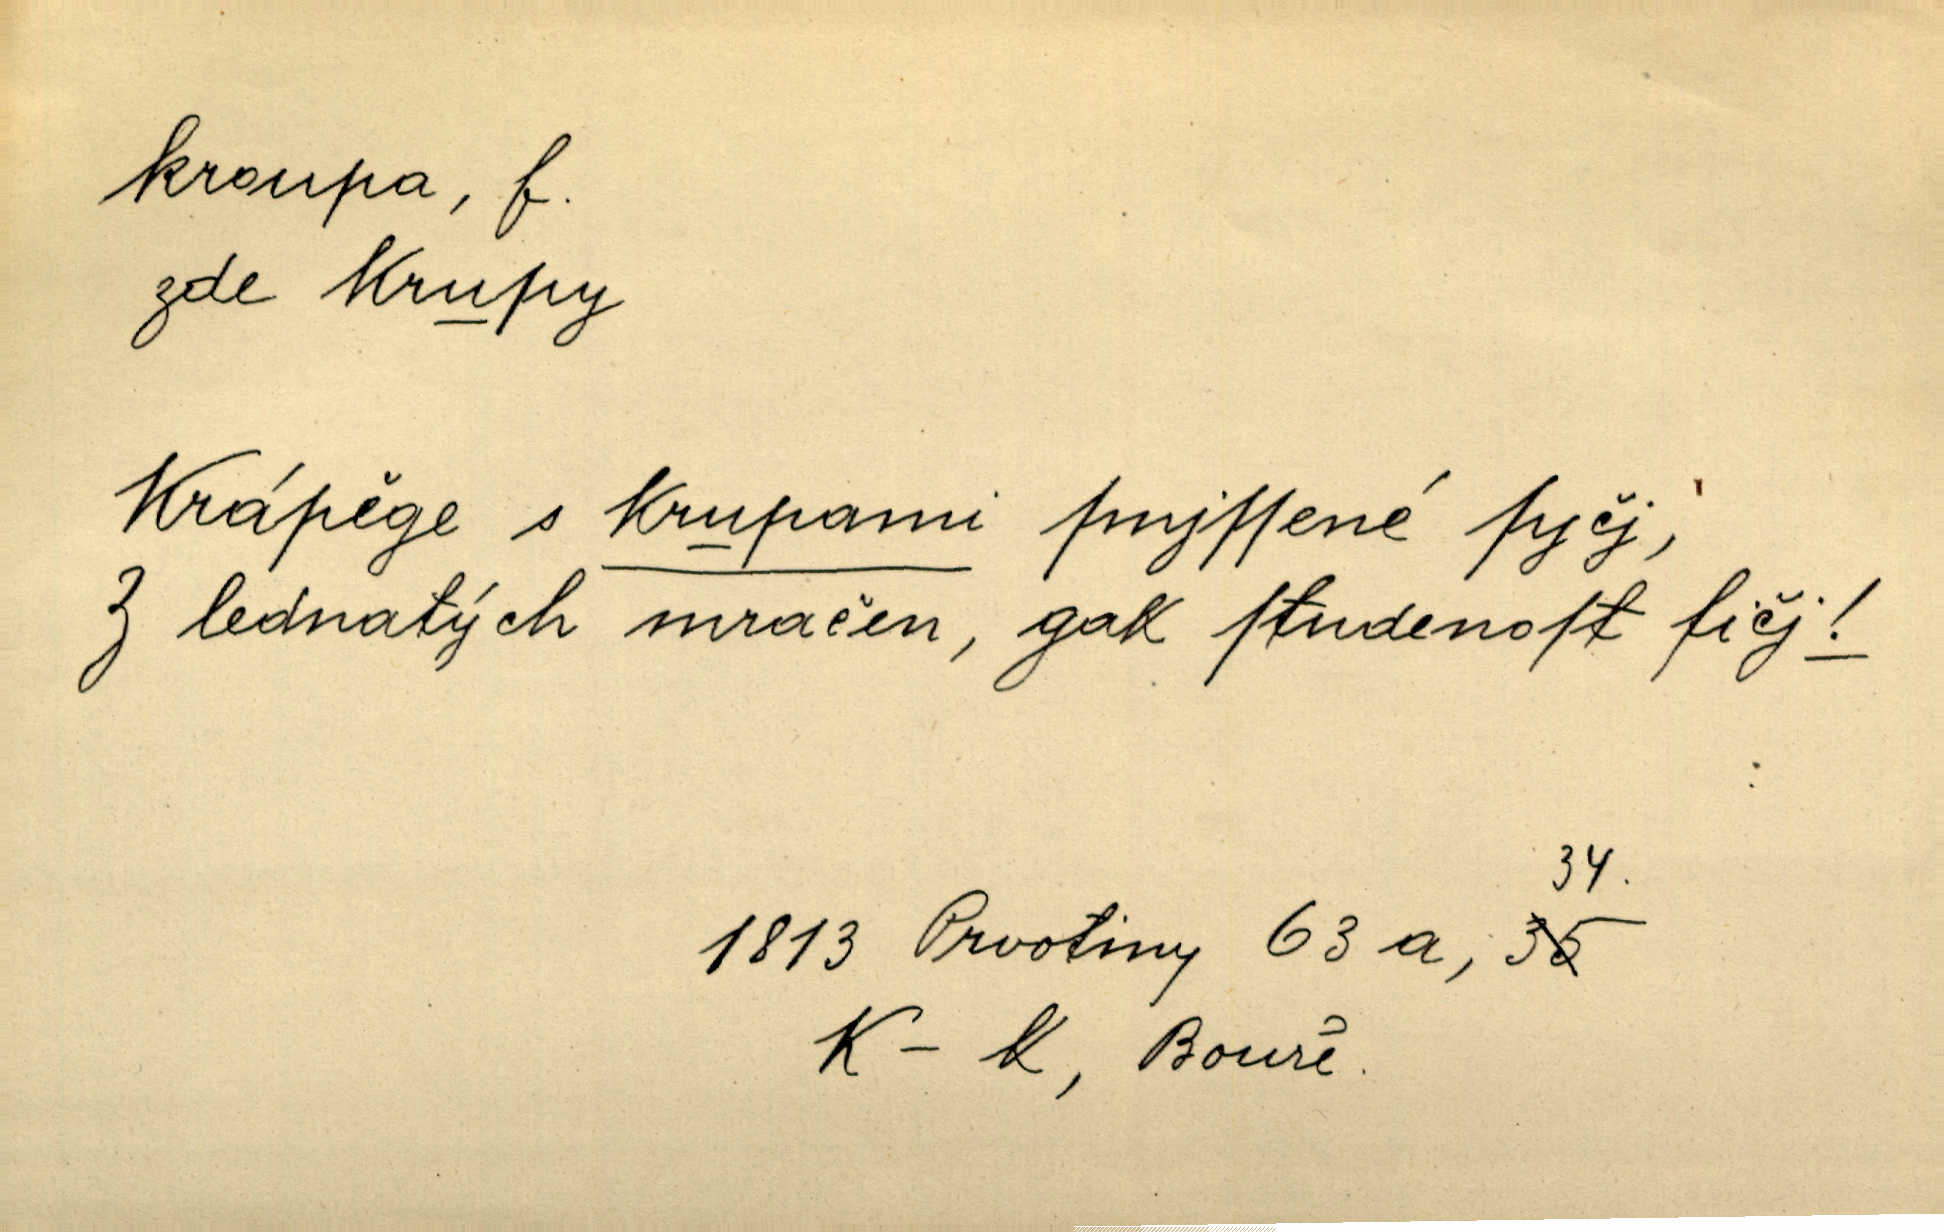 kroupa, f.
zde Krupy
Krápěge s Krupami ſmjſſené ſyčj,
Z lednatých mračen, gak ſtudenoſt fičj!
34.
1813 Prvotiny 63 a, 35
K - K, Bouře.